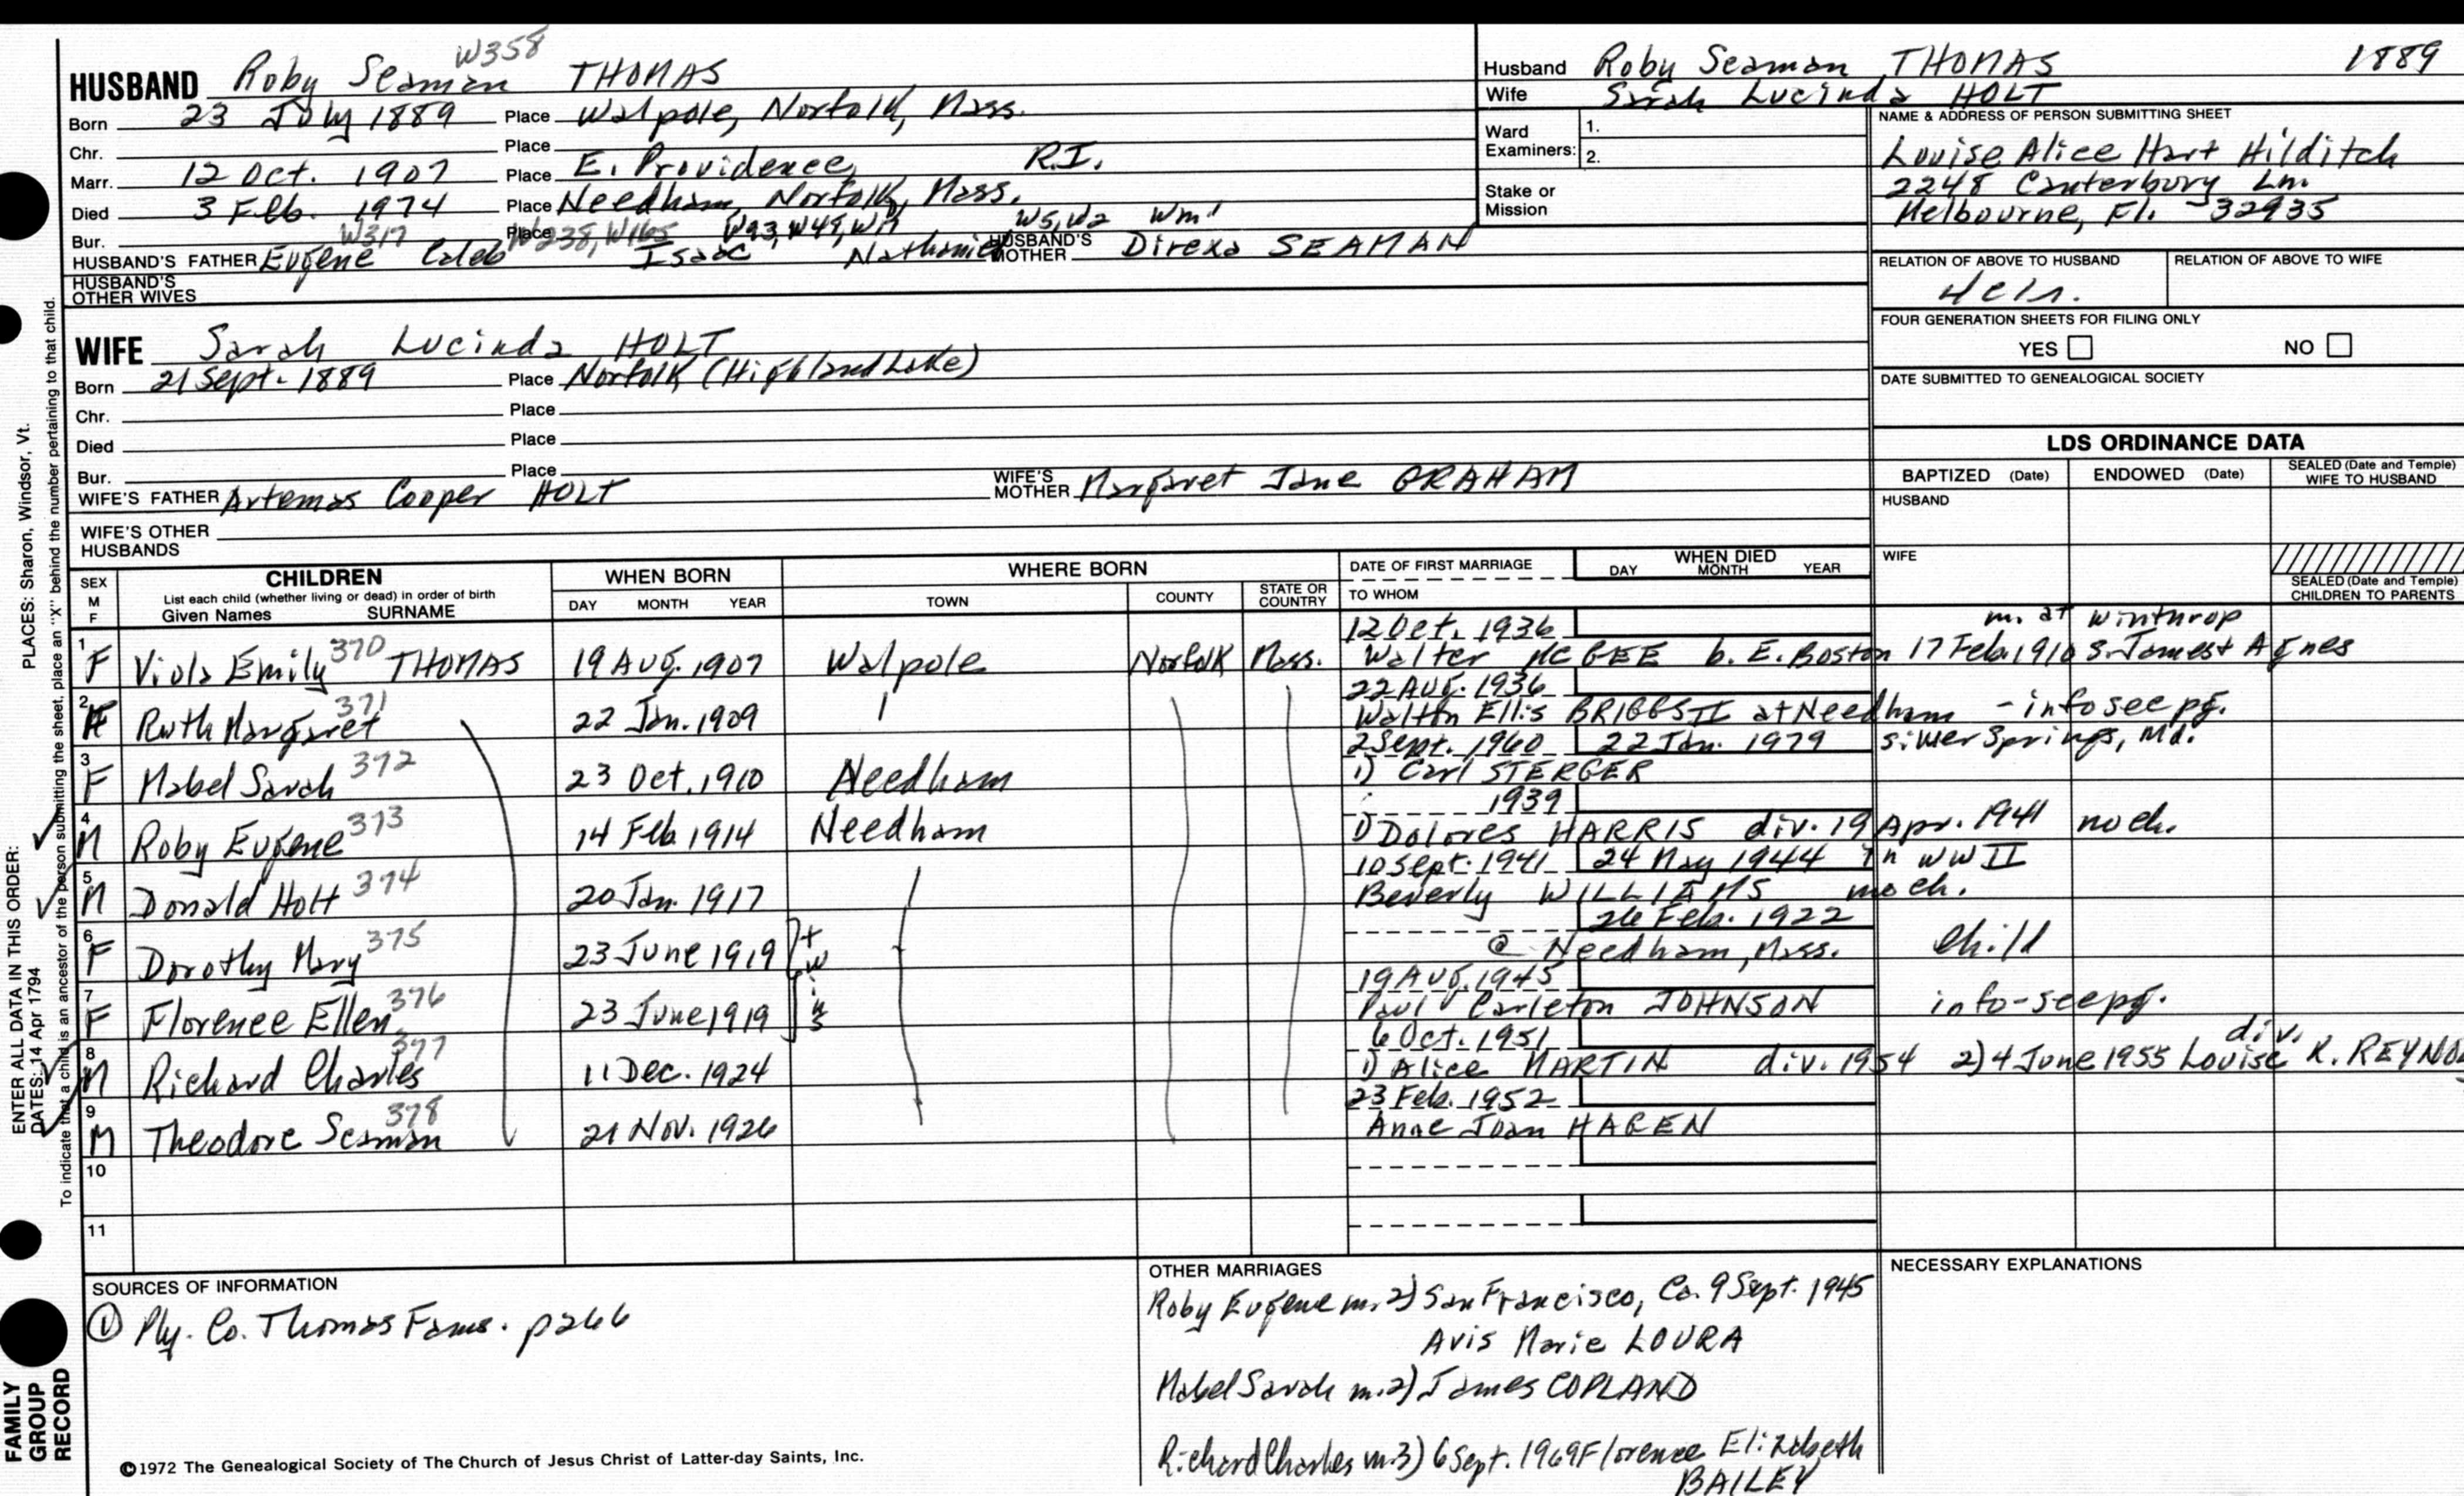 W358
HUSBAND Roby Seaman THOMAS
Born 23 July 1889 Place Walpole, Norfolk, Mass.
Chr. Place
Marr. 12 Oct. 1907 Place E. Providence, R.I.
Died 3 Feb. 1974 Place Needham, Norfolk, Mass.
Bur. Place
W317 W238, W165 W93, W49, W17 W5, W2 Wm'
HUSBAND'S FATHER Eugene Caleb Isaac Nathaniel HUSBAND'S MOTHER Direxa SEAMAN
HUSBAND'S OTHER WIVES
Husband Roby Seaman THOMAS 1889
Wife Sarah Lucinda HOLT
Ward Examiners: 1.
2.
Stake or Mission
NAME & ADDRESS OF PERSON SUBMITTING SHEET
Louise Alice Hart Hilditch
2248 Canterbury Ln.
Melbourne, Fl. 32935
RELATION OF ABOVE TO HUSBAND RELATION OF ABOVE TO WIFE
FOUR GENERATION SHEETS FOR FILING ONLY
YES NO
DATE SUBMITTED TO GENEALOGICAL SOCIETY
WIFE Sarah Lucinda HOLT
Born 21 Sept. 1889 Place Norfolk (Highland Lake)
Chr. Place
Died Place
Bur. Place
WIFE'S FATHER Artemas Cooper HOLT WIFE'S MOTHER Margaret Jane GRAHAM
WIFE'S OTHER HUSBANDS
LDS ORDINANCE DATA
BAPTIZED (Date) ENDOWED (Date) SEALED (Date and Temple) WIFE TO HUSBAND
HUSBAND
WIFE
SEALED (Date and Temple) CHILDREN TO PARENTS
SEX M F
CHILDREN
List each child (whether living or dead) in order of birth
Given Names SURNAME
WHEN BORN
DAY MONTH YEAR
WHERE BORN
TOWN COUNTY STATE OR COUNTRY
DATE OF FIRST MARRIAGE
TO WHOM
WHEN DIED
DAY MONTH YEAR
12 Oct. 1936 m. at Winthrop
1 F Viola Emily 370 THOMAS 19 Aug. 1907 Walpole Norfolk Mass. Walter McGEE b. E. Boston 17 Feb. 1910 s. James + Agnes
22 Aug. 1936
2 F Ruth Margaret 371 22 Jan. 1909 Walton Ellis BRIGGS II at Needham - info see pg.
2 Sept. 1960 22 Jan. 1979 Silver Springs, Md.
3 F Mabel Sarah 372 23 Oct. 1910 Needham 1) Carl STERGER
1939
4 M Roby Eugene 373 14 Feb. 1914 Needham 1) Dolores HARRIS div. 19 Apr. 1941 no ch.
10 Sept. 1941 24 May 1944 in WW II
5 M Donald Holt 374 20 Jan. 1917 Beverly WILLIAMS no ch.
26 Feb. 1922
6 F Dorothy Mary 375 23 June 1919 @ Needham, Mass. Child
twins
19 Aug. 1945
7 F Florence Ellen 376 23 June 1919 Paul Carleton JOHNSON info-see pg.
6 Oct. 1951
8 M Richard Charles 377 11 Dec. 1924 1) Alice MARTIN div. 1954 2) 4 June 1955 Louise K. REYNO
div.
23 Feb. 1952
9 M Theodore Seaman 378 21 Nov. 1926 Anne Joan HAGEN
10
11
SOURCES OF INFORMATION
① Ply. Co. Thomas Fams. p266
OTHER MARRIAGES
Roby Eugene m. 2) San Francisco, Ca. 9 Sept. 1945
Avis Marie LOURA
Mabel Sarah m. 2) James COPLAND
Richard Charles m. 3) 6 Sept. 1969 Florence Elizabeth
BAILEY
NECESSARY EXPLANATIONS
©1972 The Genealogical Society of The Church of Jesus Christ of Latter-day Saints, Inc.
FAMILY GROUP RECORD
ENTER ALL DATA IN THIS ORDER:
DATES: 14 Apr 1794
PLACES: Sharon, Windsor, Vt.
To indicate that a child is an ancestor of the person submitting the sheet, place an "X" behind the number pertaining to that child.